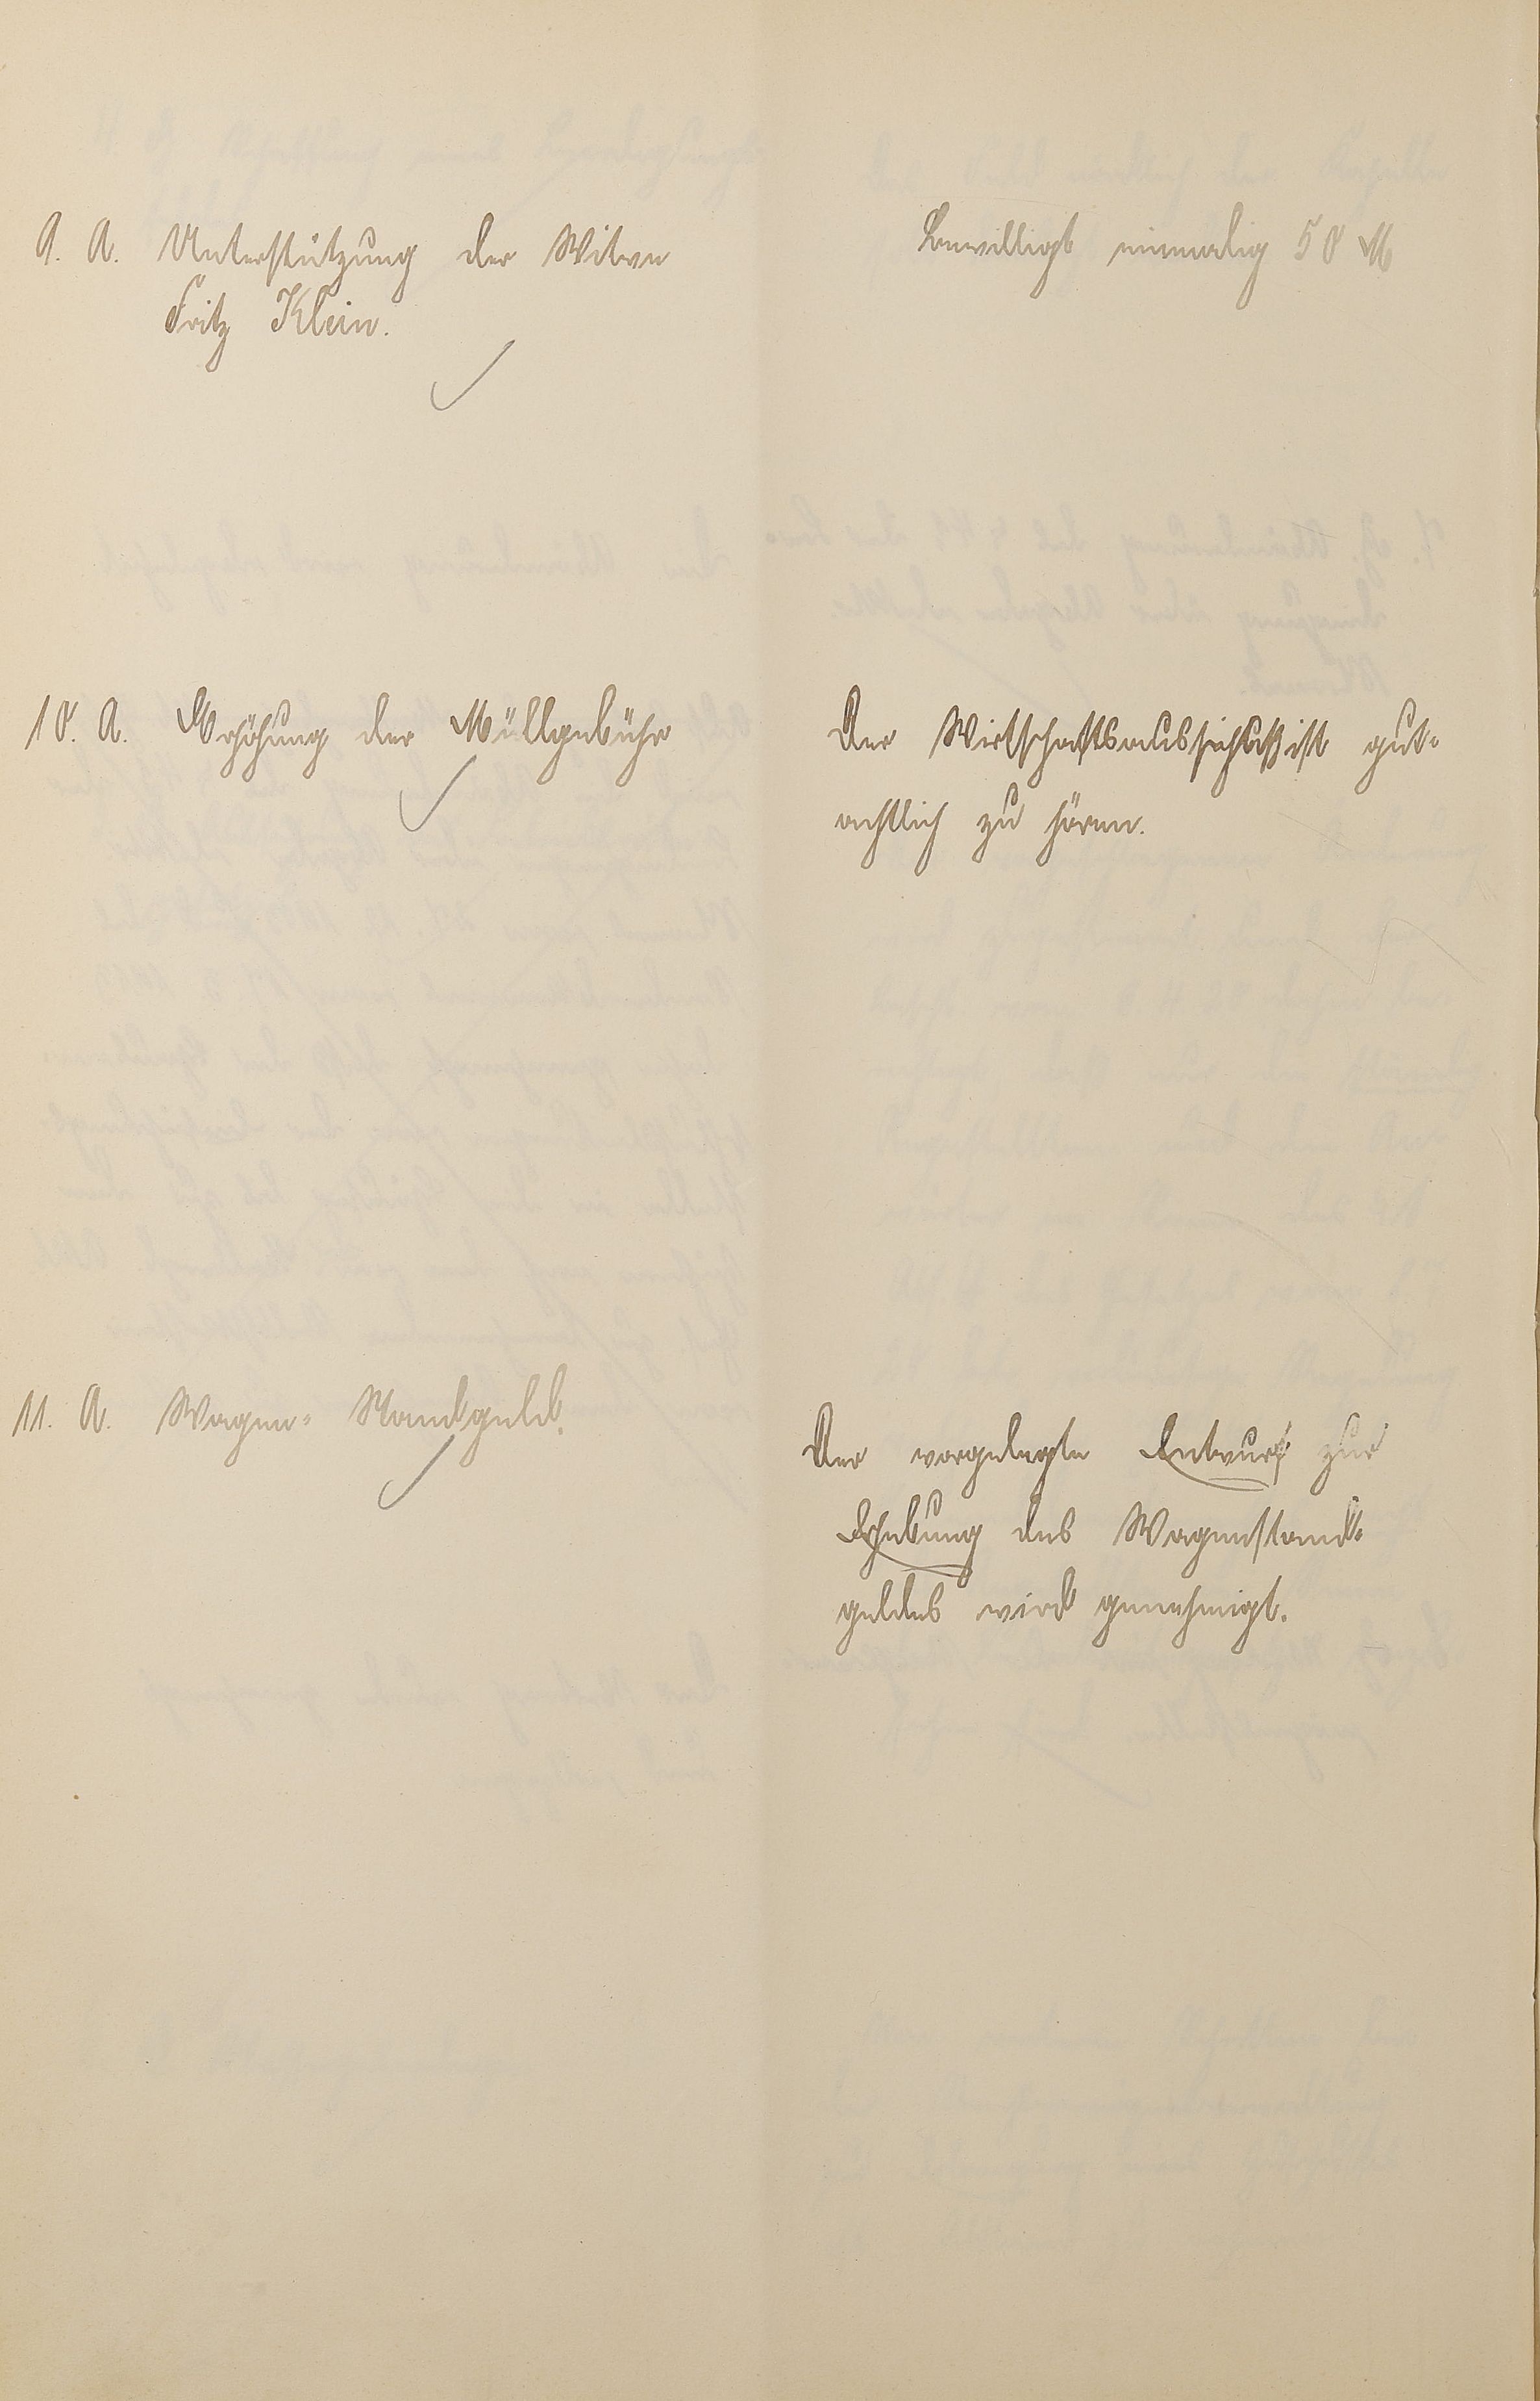 9. A. Unterstützung der Witwe
Fritz Klein.
bewilligt einmalig 50 M
10. A. Erhöhung der Müllgebühr
Der Wirtschaftsausschuß ist gut-
achtlich zu hören.
11. A. Wagen- Standgeld.
Der vorgelegte Entwurf zur
Erhebung des Wagenstand-
geldes wird genehmigt.